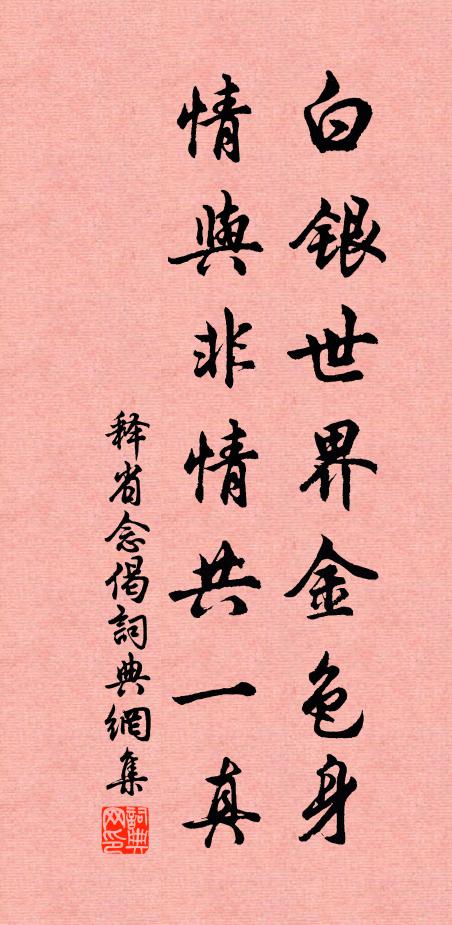 白銀世界金色身
情與非情共一真
释省念偈詞典網集
詞典网印